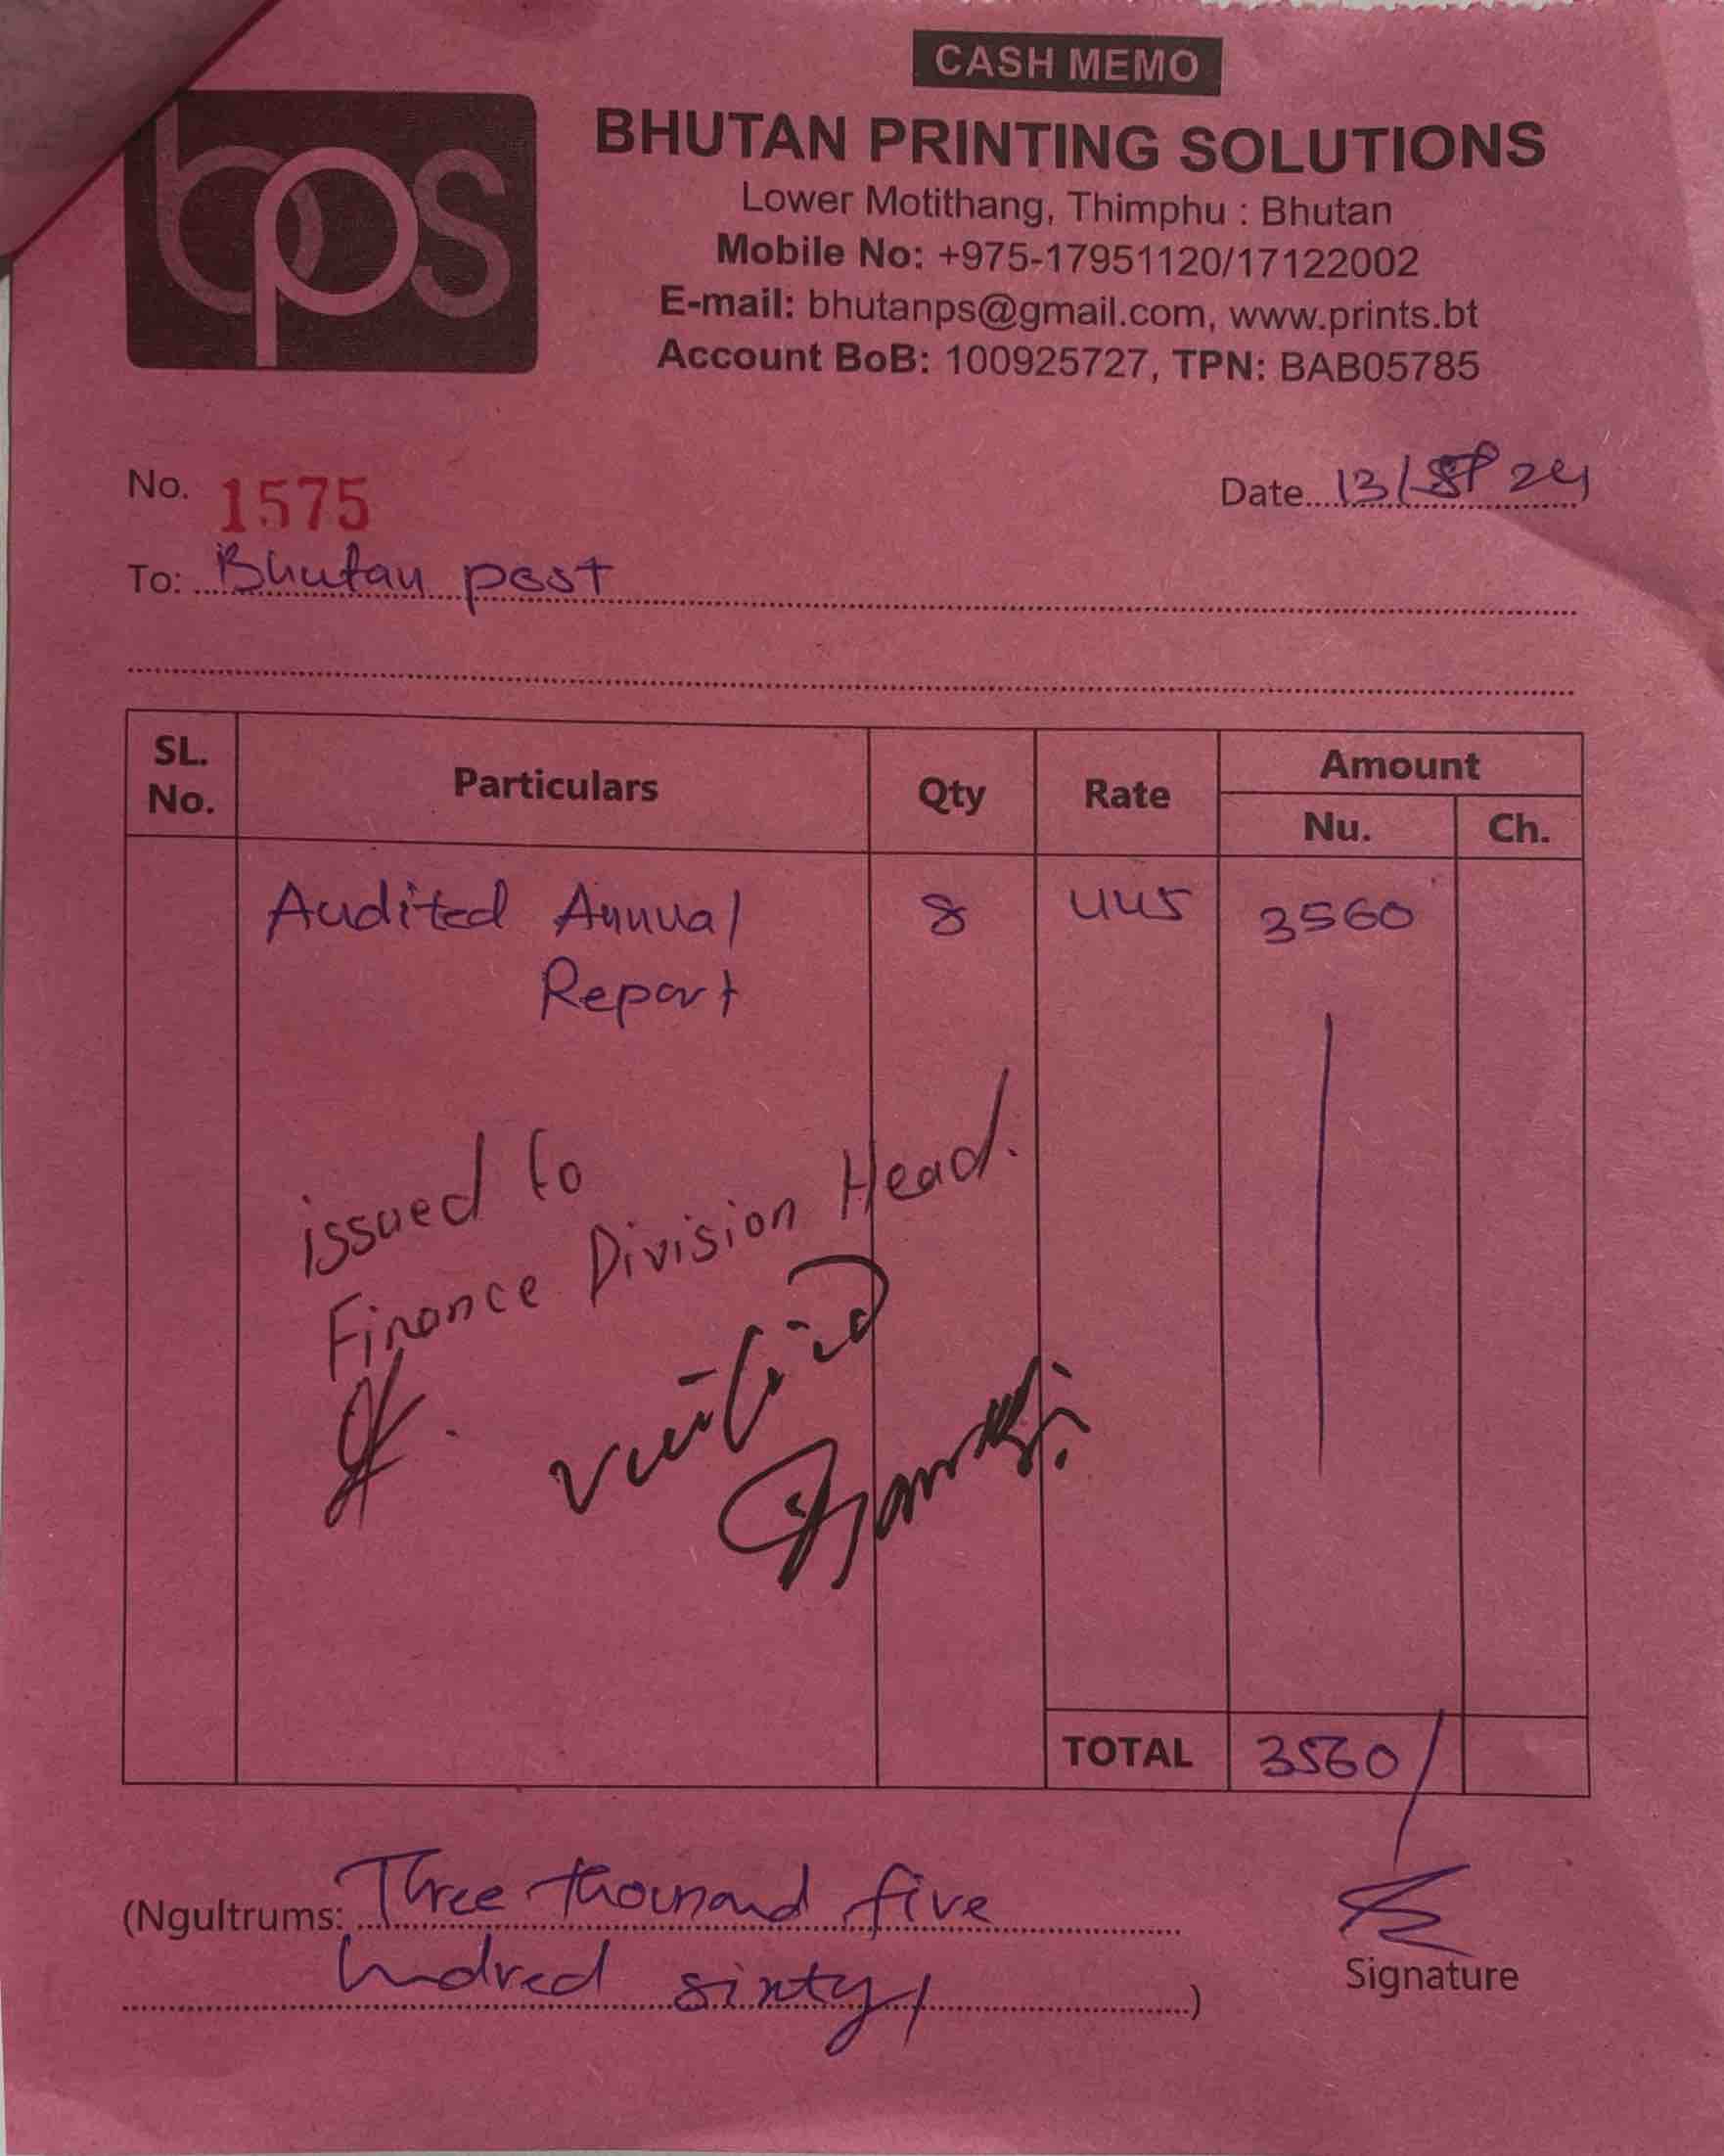 CASH MEMO
bps
BHUTAN PRINTING SOLUTIONS
Lower Motithang, Thimphu : Bhutan
Mobile No: +975-17951120/17122002
E-mail: bhutanps@gmail.com, www.prints.bt
Account BoB: 100925727, TPN: BAB05785
No. 1575
Date 13/ 24
To: Bhutan post
SL. No. Particulars Qty Rate Amount
Nu. Ch.
Audited Annual 8 445 3560
Report
issued to
Finance Division Head.
verified
TOTAL 3560/
(Ngultrums: Three thousand five
hundred sixty/ )
Signature